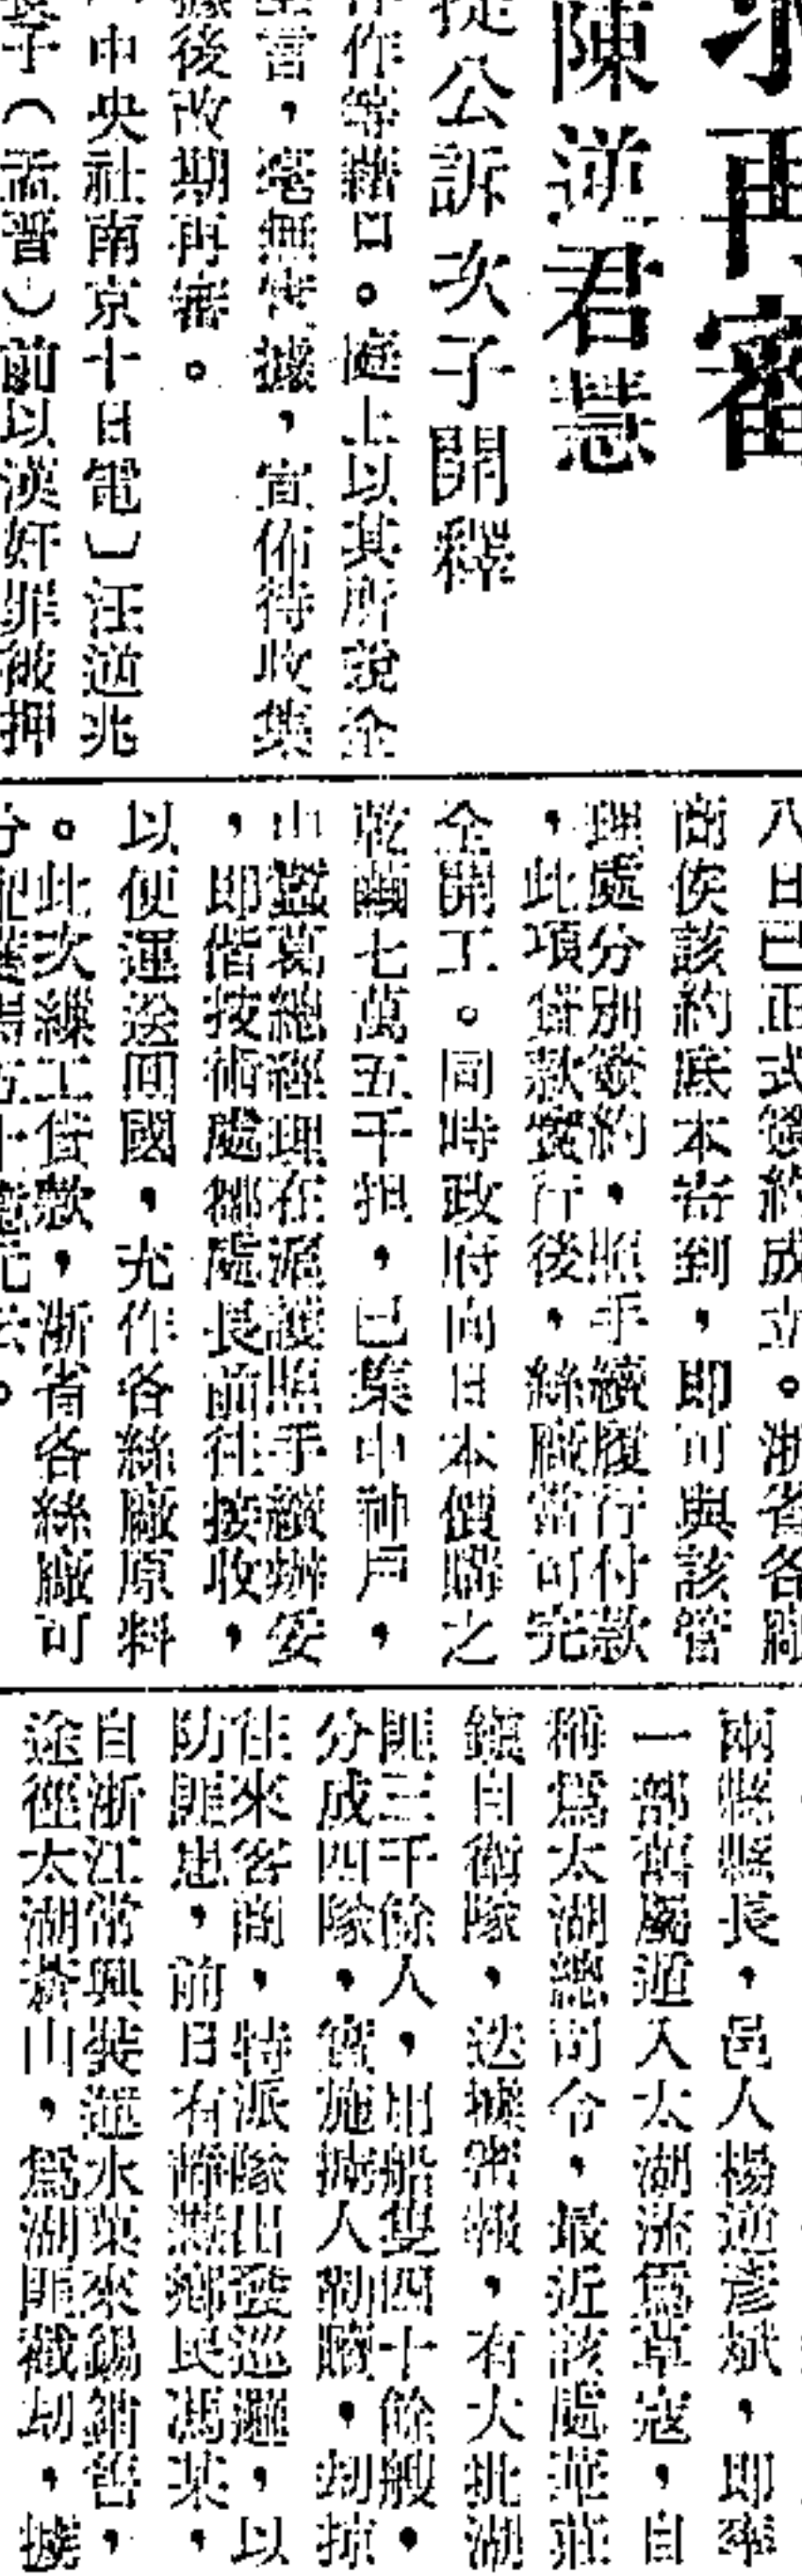 求再審
陳逆君慧
提公訴次子開釋
作等藉口。庭上以其所說全
言，毫無實據，宣佈待收集
據後改期再審。
中央社南京十日電〕汪逆兆
長子（孟晋）前以漢奸罪被押
八日已正式簽約成立。浙省各廠
商俟該約底本寄到，即可與該管
理處分別簽約，照手續履行付款
，此項貸款實行後，絲廠當可完
全開工。同時政府向日本價購之
乾繭七萬五千担，已集中神戶，
山嶽葛總經理在滬護照手續辦妥
，即偕技術處都處長前往接收，
以便運送回國，充作各絲廠原料
。此次繅工貸款，浙省各絲廠可
兩縣縣長，邑人楊逆彥斌，即率
一部舊屬遁入太湖流爲草寇，自
稱爲太湖總司令，最近該處華莊
鎮自衛隊，迭據密報，有大批湖
匪三千餘人，用船隻四十餘艘，
分成四隊，實施擄人勒贖，刼掠
往來客商，特派隊出發巡邏，以
防匪患，前日有鄉民馮某，
自浙江常興裝運水菓來錫銷售，
途徑太湖蔣山，爲湖匪截刧，擄